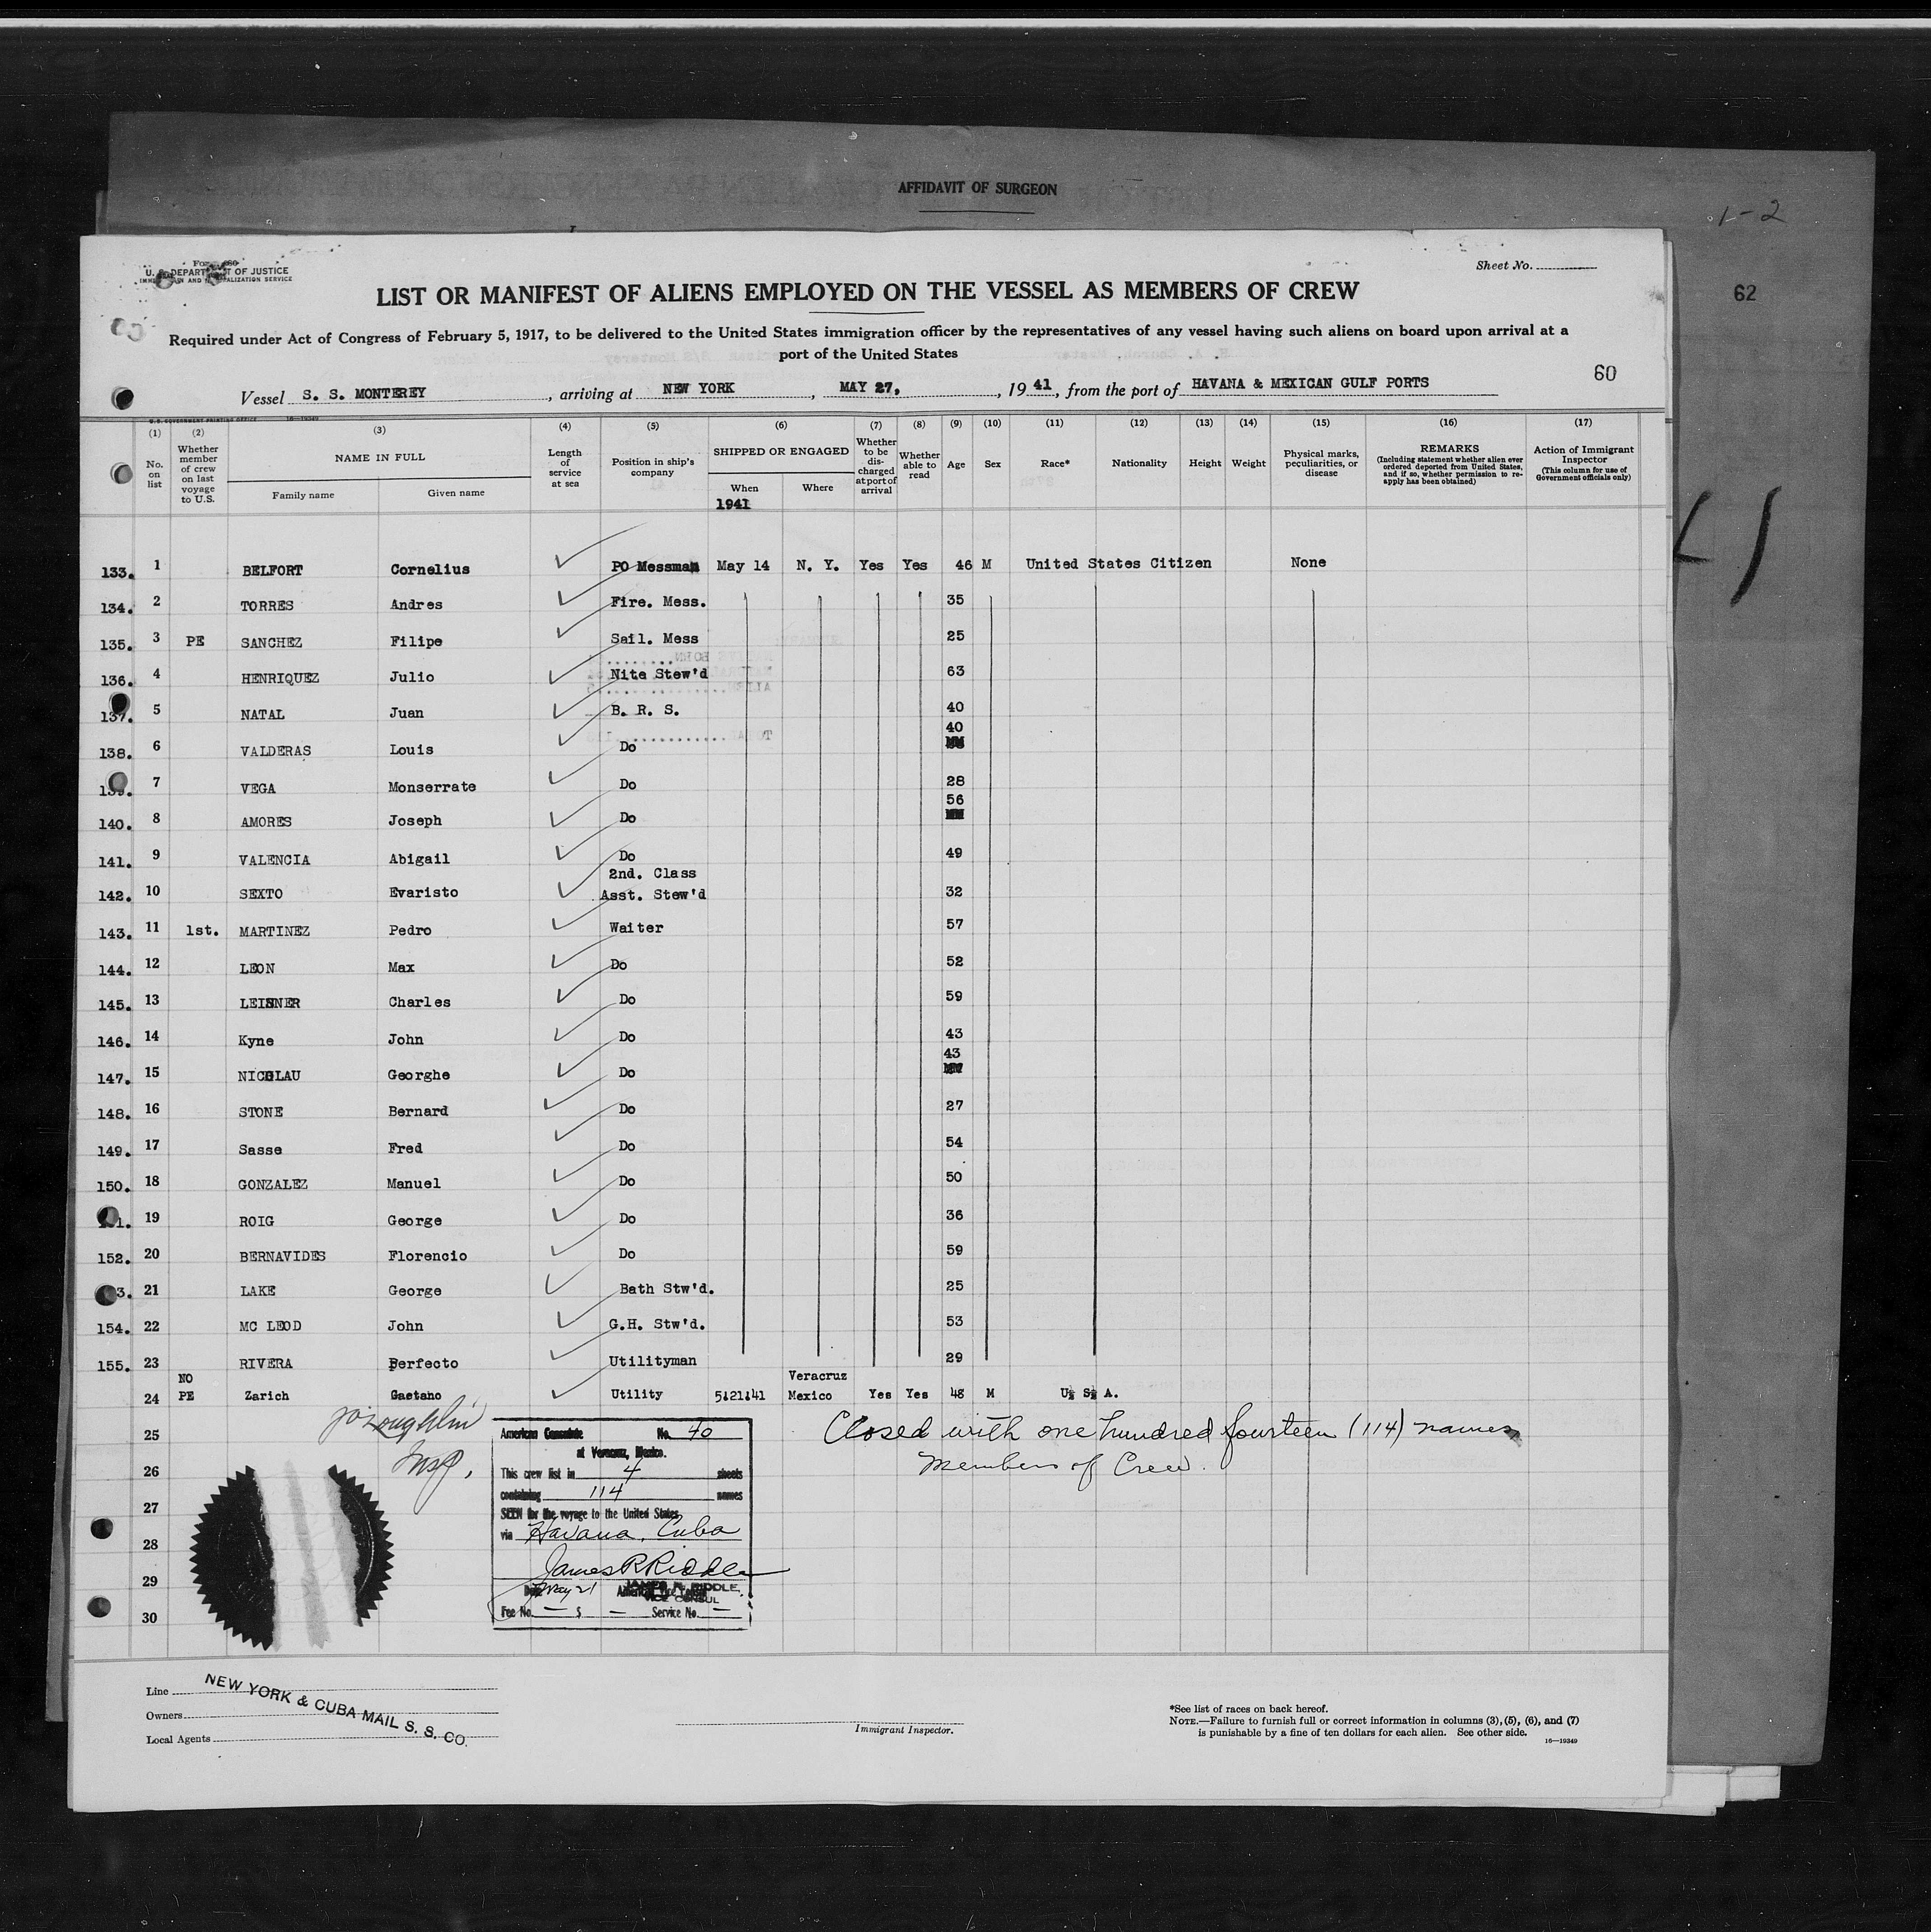 AFFIDAVIT OF SURGEON
1-2
62
U. S. DEPARTMENT OF JUSTICE
IMMIGRATION AND NATURALIZATION SERVICE
Sheet No.
LIST OR MANIFEST OF ALIENS EMPLOYED ON THE VESSEL AS MEMBERS OF CREW
Required under Act of Congress of February 5, 1917, to be delivered to the United States immigration officer by the representatives of any vessel having such aliens on board upon arrival at a
port of the United States
60
Vessel S. S. MONTEREY, arriving at NEW YORK, MAY 27, , 19 41, from the port of HAVANA & MEXICAN GULF PORTS
U.S. GOVERNMENT PRINTING OFFICE 16—19349
(1) No. on list
(2) Whether member of crew on last voyage to U.S.
(3) NAME IN FULL Family name Given name
(4) Length of service at sea
(5) Position in ship's company
(6) SHIPPED OR ENGAGED When 1941 Where
(7) Whether to be discharged at port of arrival
(8) Whether able to read
(9) Age
(10) Sex
(11) Race*
(12) Nationality
(13) Height
(14) Weight
(15) Physical marks, peculiarities, or disease
(16) REMARKS (Including statement whether alien ever ordered deported from United States, and if so, whether permission to re-apply has been obtained)
(17) Action of Immigrant Inspector (This column for use of Government officials only)
133. 1 BELFORT Cornelius PO Messman May 14 N. Y. Yes Yes 46 M United States Citizen None
134. 2 TORRES Andres Fire. Mess. 35
135. 3 PE SANCHEZ Filipe Sail. Mess 25
136. 4 HENRIQUEZ Julio Nite Stew'd 63
137. 5 NATAL Juan B. R. S. 40
138. 6 VALDERAS Louis Do 40
139. 7 VEGA Monserrate Do 28
140. 8 AMORES Joseph Do 56
141. 9 VALENCIA Abigail Do 49
142. 10 SEXTO Evaristo 2nd. Class Asst. Stew'd 32
143. 11 1st. MARTINEZ Pedro Waiter 57
144. 12 LEON Max Do 52
145. 13 LEISNER Charles Do 59
146. 14 Kyne John Do 43
147. 15 NICOLAU Georghe Do 43
148. 16 STONE Bernard Do 27
149. 17 Sasse Fred Do 54
150. 18 GONZALEZ Manuel Do 50
1. 19 ROIG George Do 36
152. 20 BERNAVIDES Florencio Do 59
3. 21 LAKE George Bath Stw'd. 25
154. 22 MC LEOD John G.H. Stw'd. 53
155. 23 RIVERA Perfecto Utilityman 29
24 NO PE Zarich Gaetano Utility 5:21:41 Veracruz Mexico Yes Yes 48 M U. S. A.
25
26
27
28
29
30
Insp.
Closed with one hundred fourteen (114) names
Members of Crew.
American Consulate No. 40
at Veracruz, Mexico.
This crew list in 4 sheets
containing 114 names
SEEN for the voyage to the United States
via Havana, Cuba
James R Riddle
Date May 21 American Vice Consul
JAMES R. RIDDLE,
VICE CONSUL
Fee No. — $ — Service No. —
Line
Owners
Local Agents
NEW YORK & CUBA MAIL S. S. CO.
Immigrant Inspector.
*See list of races on back hereof.
NOTE.—Failure to furnish full or correct information in columns (3), (5), (6), and (7)
is punishable by a fine of ten dollars for each alien. See other side.
16—19349